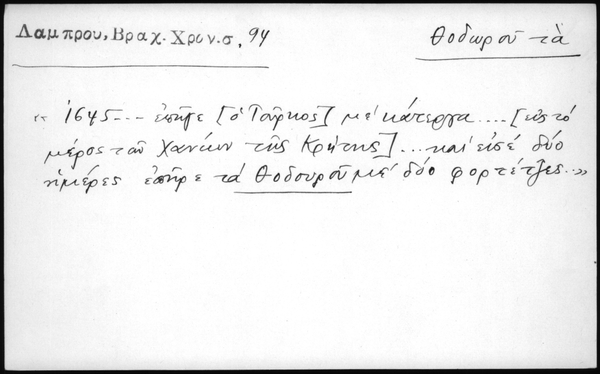 Λαμπρου, Βραχ. Χρον. σ, 94
Θοδωροῦ τὰ
« 1645 --- ἐπῆγε [ὁ Τοῦρκος] μὲ κάτεργα .... [εἰς τὸ
μέρος τῶν Χανίων τῆς Κρήτης] ... καὶ εἰσέ δύο
ἡμέρες ἐπῆρε τὰ Θοδουροῦ μὲ δύο φορτέτζες .. »